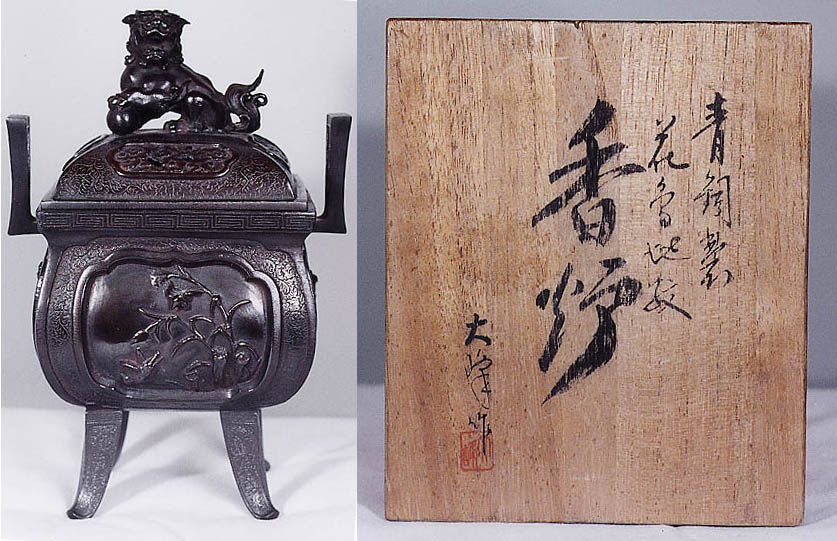 青銅製
花鳥地紋
香炉
大峰作